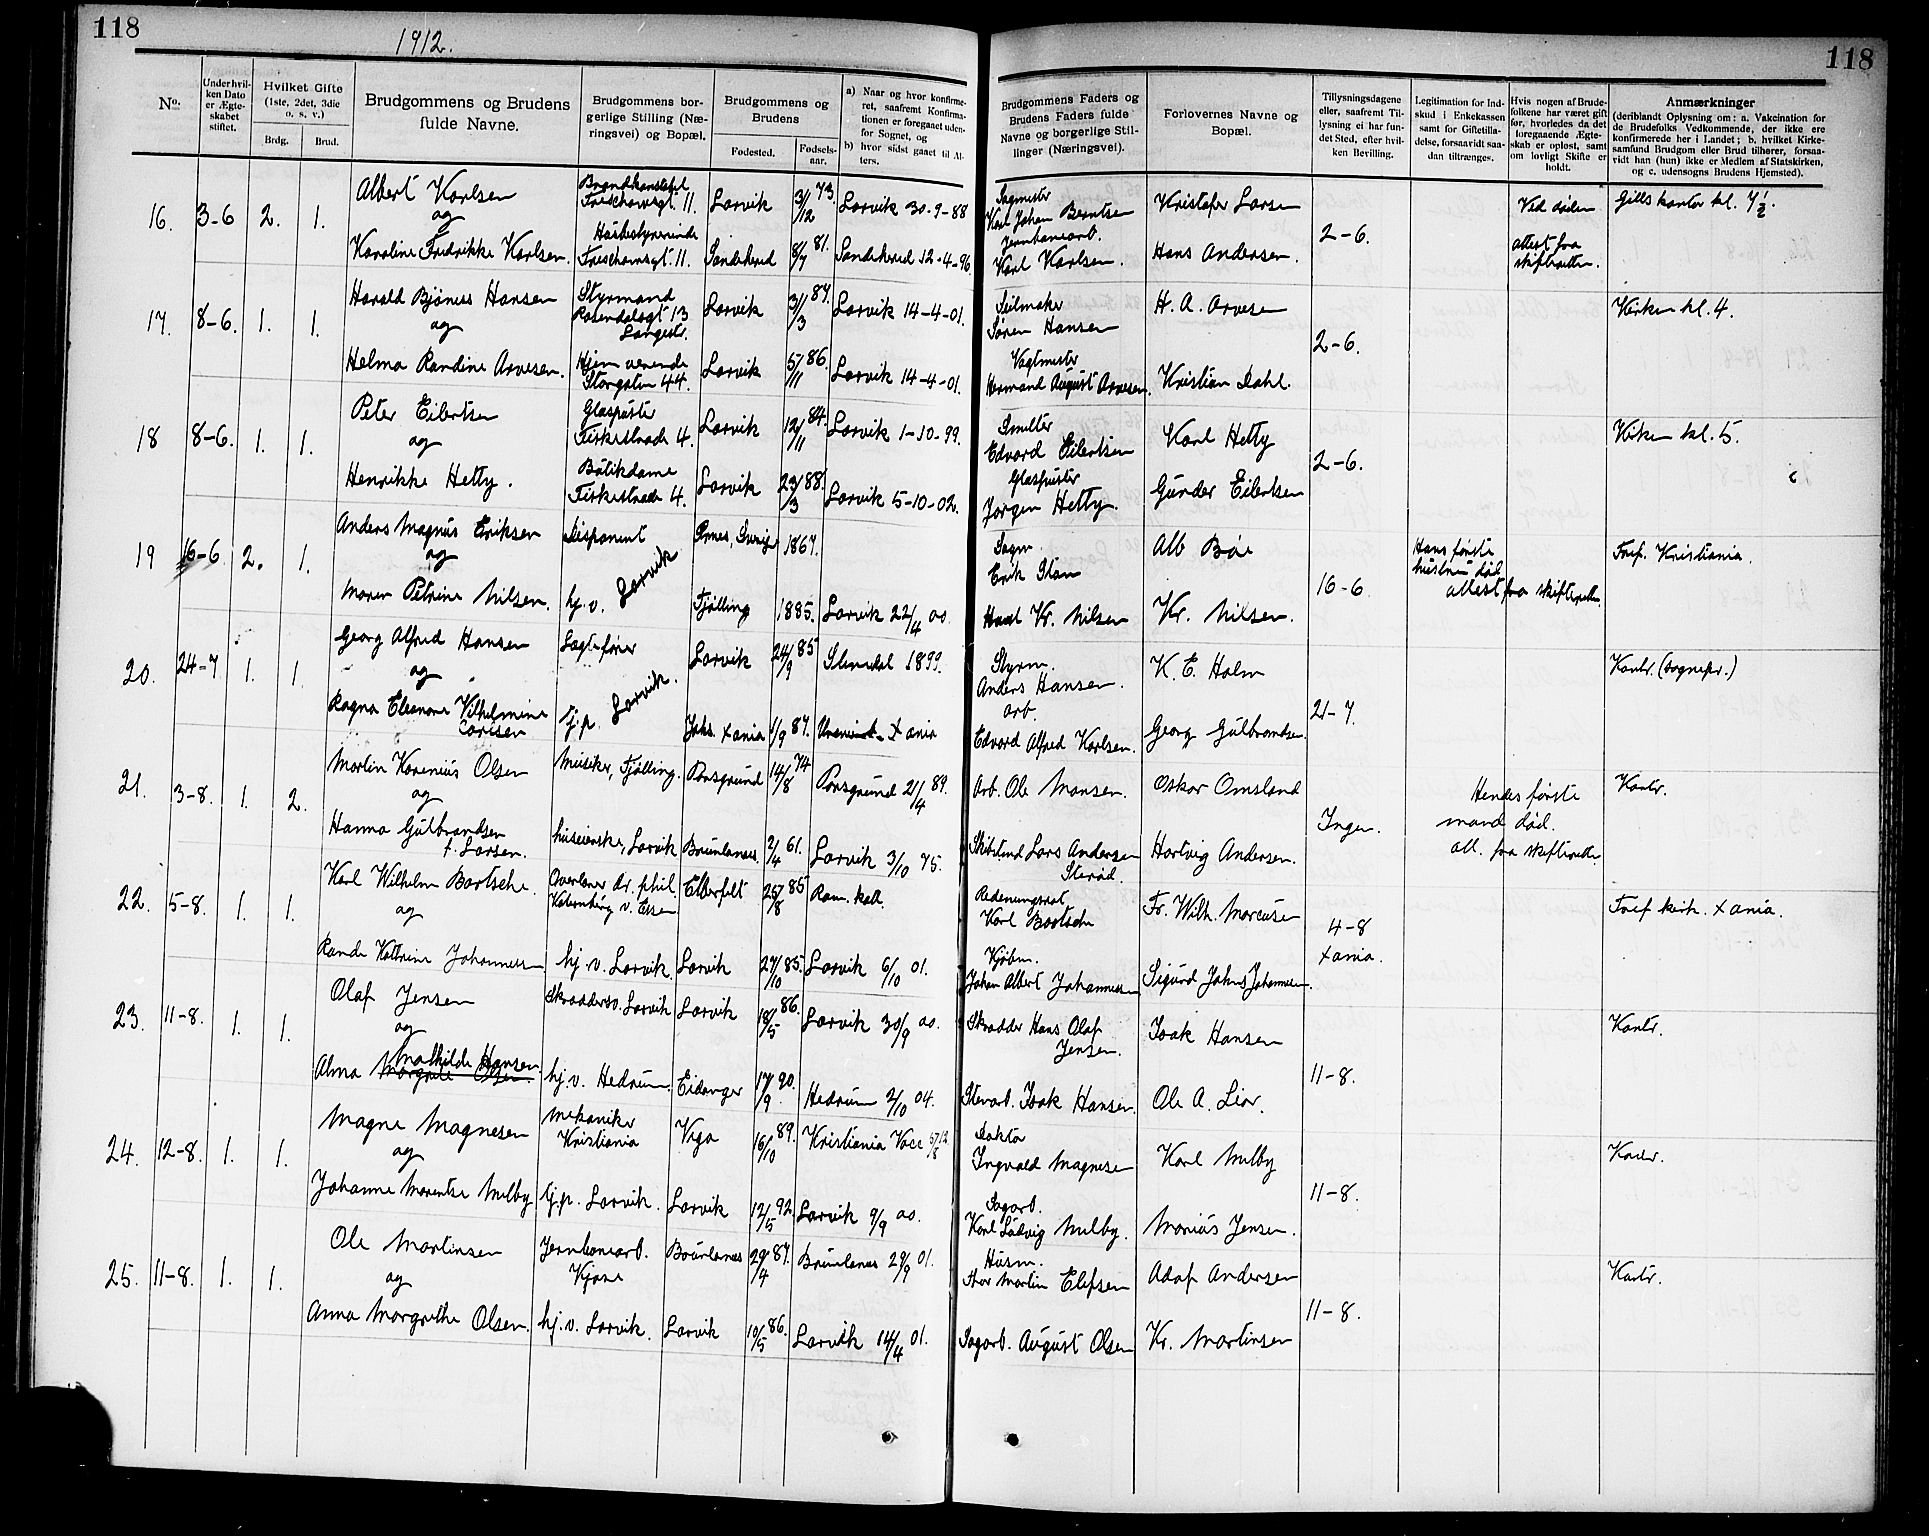 118
1912.
118
No.
Under hvil-
ken Dato
er Ægte-
skabet
stiftet.
Hvilket Gifte
(1ste, 2det, 3die
o. s. v.)
Brdg.
Brud.
Brudgommens og Brudens
fulde Navne.
Brudgommens bor-
gerlige Stilling (Næ-
ringsvei) og Bopæl.
Brudgommens og
Brudens
Fødested.
Fødsels-
aar.
a) Naar og hvor konfirme-
ret, saafremt Konfirma-
tionen er foregaaet uden-
for Sognet, og
b) hvor sidst gaaet til Al-
ters.
Brudgommens Faders og
Brudens Faders fulde
Navne og borgerlige Stil-
linger (Næringsvei).
Forlovernes Navne og
Bopæl.
Tillysningsdagene
eller, saafremt Til-
lysning ei har fun-
det Sted, efter hvil-
ken Bevilling.
Legitimation for Ind-
skud i Enkekassen
samt for Giftetilla-
delse, forsaavidt saa-
dan tiltrænges.
Hvis nogen af Brude-
folkene har været gift
før, hvorledes da det
foregaaende Ægte-
skab er opløst, samt
om lovligt Skifte er
holdt.
Anmærkninger
(deriblandt Oplysning om: a. Vakcination for
de Brudefolks Vedkommende, der ikke ere
konfirmerede her i Landet; b. hvilket Kirke-
samfund Brudgom eller Brud tilhører, forsaa-
vidt han (hun) ikke er Medlem af Statskirken,
og c. udensogns Brudens Hjemsted).
16. 3-6 2. 1. Albert Karlsen Brandkonstabel Treschowsgt. 11. Larvik 3/12 73. Larvik 30-9-88 Karl Johan Berntsen Kristofer Larsen 2-6. Ved døden Gills kontor kl. 7½.
og
Karoline Fredrikke Karlsen. Treschowsgt. 11. Sandeherred 8/7 81. Sandeherred 12-4-96 Jernbanearb. Karl Karlsen. Hans Andersen. attest fra skifteretten.
17. 8-6. 1. 1. Harald Bjønnes Hansen Styrmand Larvik 3/3 87. Larvik 14-4-01. Seilmaker Søren Hansen H. A. Arvesen 2-6. Kirken kl. 4.
og
Helma Randine Arvesen. Hjemmeværende Storgaten 44. Larvik 5/11 86. Larvik 14-4-01. Vagtmester Herman August Arvesen. Kristian Dahl.
18 8-6. 1. 1. Peter Eilertsen Glaspuster Fiskestrade 4. Larvik 12/11 84. Larvik 1-10-99. Smelter Edvard Eilertsen Karl Hetty 2-6. Kirken kl. 5.
og
Henrikke Hetty. Butikdame Fiskestrade 4. Larvik 23/3 88. Larvik 5-10-02. Glaspuster Jørgen Hetty. Gunder Eilertsen
19 16-6 2. 1. Anders Magnus Eriksen Disponent Larvik 1867. Sagm. Erik Alb Bøe 16-6 Hans første hustru død attest fra skifteretten. Kristiania.
og
Maren Petrine Nilsen. hj.v. Tjølling 1885. Larvik 22/4 00. Kr. Nilsen Kr. Nilsen.
20. 24-7 1. 1. Georg Alfred Hansen Larvik. Larvik 24/9 85 1899. Styrm. Anders Hansen. K. E. Holm 21-7. Kontr. (sognepr.)
og
Ragna Eleonore Vilhelmine Carlsen hj.p. Jaks. Xania 1/9 87. Xania arb. Edvard Alfred Karlsen. Georg Gulbrandsen
21. 3-8. 1. 2. Martin Karenius Olsen Musiker, Tjølling. Porsgrund 14/8 74 Porsgrund 21/4 89. Arb. Ole Monsen. Oskar Omsland Ingen. Hendes første mand død. att. fra skifteretten. Kontr.
og
Hanna Gulbrandsen f. Larsen. huseierske, Larvik Brunlanes. 2/4 61. Larvik 3/10 75. Lars Andersen Hartvig Andersen.
22. 5-8. 1. 1. Karl Wilhelm Bartsche. dr. phil. Elberfelt 25/8 85 Rom. kat. Karl Bartsche Fr. Wilh. Marcusen 4-8 Xania. kirk. Xania.
og
Randi Kathrine Johannesen hj.v. Larvik. Larvik 27/10 85. Larvik 6/10 01. Kjøbm. Johan Albert Johannesen Sigurd Johns Johannesen.
23. 11-8. 1. 1. Olaf Jensen Skrædersv. Larvik Larvik 18/5 86. Larvik 30/9 00. Skrædder Hans Olaf Jensen. Isak Hansen 11-8. Kontr.
og
Alma Mathilde Hansen Margrete Olsen. hj.v. Hedrum. Eidanger 17/9 90. Hedrum 2/10 04. Isak Hansen. Ole A. Lior.
24. 12-8. 1. 1. Magne Magnesen Mekaniker Kristiania Vega 16/10 89. Kristiania Doktor Ingvald Magnesen Karl Melby 11-8. Kontr.
og
Johanne Marentse Melby hj.p. Larvik. Larvik 12/5 92. Larvik 9/9 00. Sagarb. Karl Ludvig Melby. Marius Jensen.
25. 11-8. 1. 1. Ole Martinsen Jernbanearb. Kjose Brunlanes 29/4 87. Brunlanes 29/9 01. Husm. Martin Elefsen Adof Andersen 11-8. Kontr.
og
Anna Margrethe Olsen. hj.v. Larvik. Larvik 10/5 86. Larvik 14/4 01. Sagarb. August Olsen Kr. Martinsen